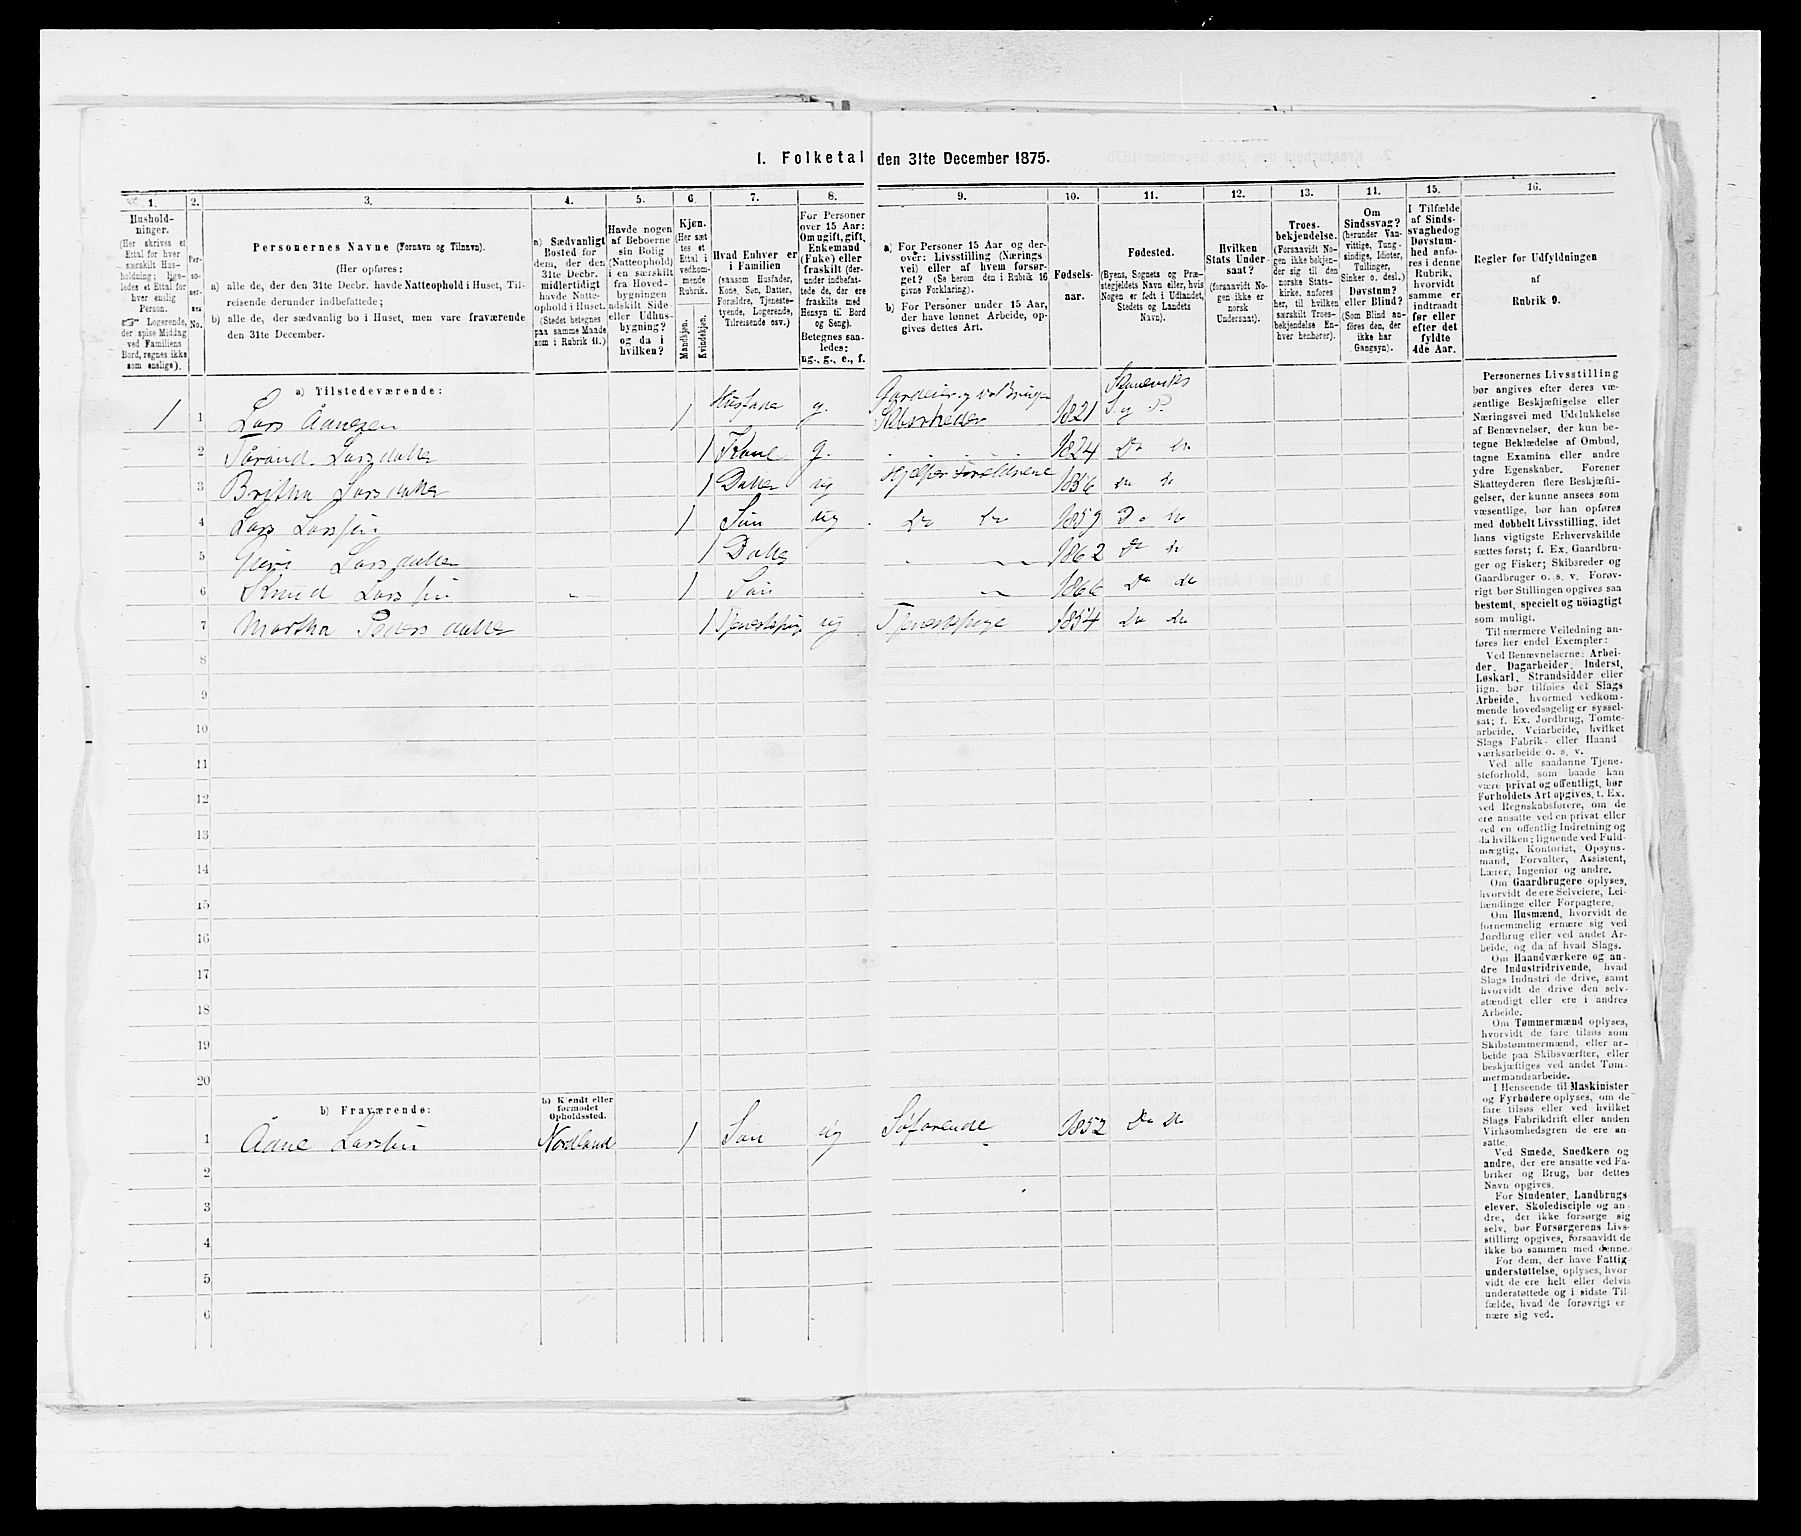 1. Folketal den 31te December 1875.
1. 2. 3. 4. 5. 6. 7. 8. 9. 10. 11. 12. 13. 14. 15. 16.
Hushold-
ninger.
(Her skrives et
Ettal for hver
særskilt Hus-
holdning; lige-
ledes et Ettal for
hver enslig
Person.
☞ Logerende,
der spise Middag
ved Familiens
Bord, regnes ikke
som enslige).
Per-
so-
ner-
nes
No.
Personernes Navne (Fornavn og Tilnavn).
(Her opføres:
a) alle de, der den 31te Decbr. havde Natteophold i Huset, Til-
reisende derunder indbefattede;
b) alle de, der sædvanlig bo i Huset, men vare fraværende
den 31te December.
a) Sædvanligt
Bosted for
dem, der den
31te Decbr.
midlertidigt
havde Natte-
ophold i Huset.
(Stedet betegnes
paa samme Maade
som i Rubrik 11.)
Havde nogen
af Beboerne
sin Bolig
(Natteophold)
i en særskilt
fra Hoved-
bygningen
adskilt Side
eller Udhus-
bygning?
og da i
hvilken?
Kjøn.
(Her sæt-
tes et
Ettal i
vedkom-
mende
Rubrik.
Mandkjøn.
Kvindekjøn.
Hvad Enhver er
i Familien
(saasom Husfader,
Kone, Søn, Datter,
Forældre, Tjeneste-
tyende, Logerende,
Tilreisende osv.)
For Personer
over 15 Aar:
Om ugift, gift,
Enkemand
(Enke) eller
fraskilt (der-
under indbefat-
tede de, der ere
fraskilte med
Hensyn til Bord
og Seng).
Betegnes saa-
ledes:
ug., g., e., f.
a) For Personer 15 Aar og der-
over: Livsstilling (Nærings-
vei) eller af hvem forsør-
get? (Se herom den i Rubrik 16
givne Forklaring).
b) For Personer under 15 Aar,
der have lønnet Arbeide, op-
gives dettes Art.
Fødsels-
aar.
Fødested.
(Byens, Sognets og Præ-
stegjeldets Navn eller, hvis
Nogen er født i Udlandet,
Stedets og Landets
Navn).
Hvilken
Stats Under-
saat?
(forsaavidt No-
gen ikke er
norsk
Undersaat).
Troes-
bekjendelse.
(Forsaavidt No-
gen ikke bekjen-
der sig til den
norske Stats-
kirke, anføres
her, til hvilken
særskilt Troes-
bekjendelse En-
hver henhører).
Om
Sindssvag?
(herunder Van-
vittige, Tung-
sindige, Idioter,
Tullinger,
Sinker o. desl.)
Døvstum?
eller Blind?
(Som Blind an-
føres den, der
ikke har
Gangsyn).
I Tilfælde
af Sinds-
svaghed og
Døvstum-
hed anfø-
res i denne
Rubrik,
hvorvidt
samme er
indtraadt
før eller
efter det
fyldte
4de Aar.
Regler for Udfyldningen
af
Rubrik 9.
a) Tilstedeværende:
1 1 Lars Åanesen 1 Husfader g. 1821 S. og P.
2 Larsdatter 1 Kone g. 1824 Do do
3 Britha Larsdatter 1 Datter ug Hjelper Foreldrene 1856 do do
4 Lars Larssen 1 Søn ug do do 1859 Do do
5 Larsdatter 1 Datter 1862 Do do
6 Knud Larssen 1 Søn 1866 Do do
7 Martha Pedersdatter 1 Tjenestepige ug Tjenestepige 1854 do do
8
9
10
11
12
13
14
15
16
17
18
19
20
b) Fraværende:
b) Kjendt eller
formodet
Opholdssted.
1 Åane Larssen Nordland 1 Søn ug Søfarende 1852 Do do
2
3
4
5
6
Personernes Livsstilling
bør angives efter deres væ-
sentlige Beskjæftigelse eller
Næringsvei med Udelukkelse
af Benævnelser, der kun be-
tegne Beklædelse af Ombud,
tagne Examina eller andre
ydre Egenskaber. Forener
Skatteyderen flere Beskjæfti-
gelser, der kunne ansees som
væsentlige, bør han opføres
med dobbelt Livsstilling, idet
hans vigtigste Erhvervskilde
sættes først; f. Ex. Gaardbru-
ger og Fisker; Skibsreder og
Gaardbruger o. s. v. Forøv-
rigt bør Stillingen opgives saa
bestemt, specielt og nøiagtigt
som muligt.
Til nærmere Veiledning an-
føres her endel Exempler:
Ved Benævnelserne: Arbei-
der, Dagarbeider, Inderst,
Løskarl, Strandsidder eller
lign. bør tilføies det Slags
Arbeide, hvormed vedkom-
mende hovedsagelig er syssel-
sat; f. Ex. Jordbrug, Tomte-
arbeide, Veiarbeide, hvilket
Slags Fabrik- eller Haand-
værksarbeide o. s. v.
Ved alle saadanne Tjene-
steforhold, som baade kan
være privat og offentligt, bør
Forholdets Art opgives, t. Ex.
ved Regnskabsførere, om de
ere ansatte ved en privat eller
ved en offentlig Indretning og
da hvilken; lignende ved Fuld-
mægtig, Kontorist, Opsyns-
mand, Forvalter, Assistent,
Lærer, Ingeniør og andre.
Om Gaardbrugere oplyses,
hvorvidt de ere Selveiere, Lei-
lændinge eller Forpagtere.
Om Husmænd, hvorvidt de
fornemmelig ernære sig ved
Jordbrug eller ved andet Ar-
beide, og da af hvad Slags.
Om Haandværkere og an-
dre Industridrivende, hvad
Slags Industri de drive, samt
hvorvidt de drive den selv-
stændigt eller ere i andres
Arbeide.
Om Tømmermænd oplyses,
hvorvidt de fare tilsøs som
Skibstømmermænd, eller ar-
beide paa Skibsværfter, eller
beskjæftiges ved andet Tøm-
mermandsarbeide.
I Henseende til Maskinister
og Fyrbødere oplyses, om de
fare tilsøs eller ved hvilket
Slags Fabrikdrift eller anden
Virksomhedsgren de ere an-
satte.
Ved Smede, Snedkere og
andre, der ere ansatte ved Fa-
briker og Brug, bør dettes
Navn opgives.
For Studenter, Landbrugs-
elever, Skoledisciple og an-
dre, der ikke forsørge sig
selv, bør Forsørgerens Livs-
stilling opgives, forsaavidt de
ikke bo sammen med denne.
For dem, der have Fattig-
understøttelse, oplyses, hvor-
vidt de ere helt eller delvis
understøttede og i sidste Til-
fælde, hvad de forøvrigt er
nære sig ved.